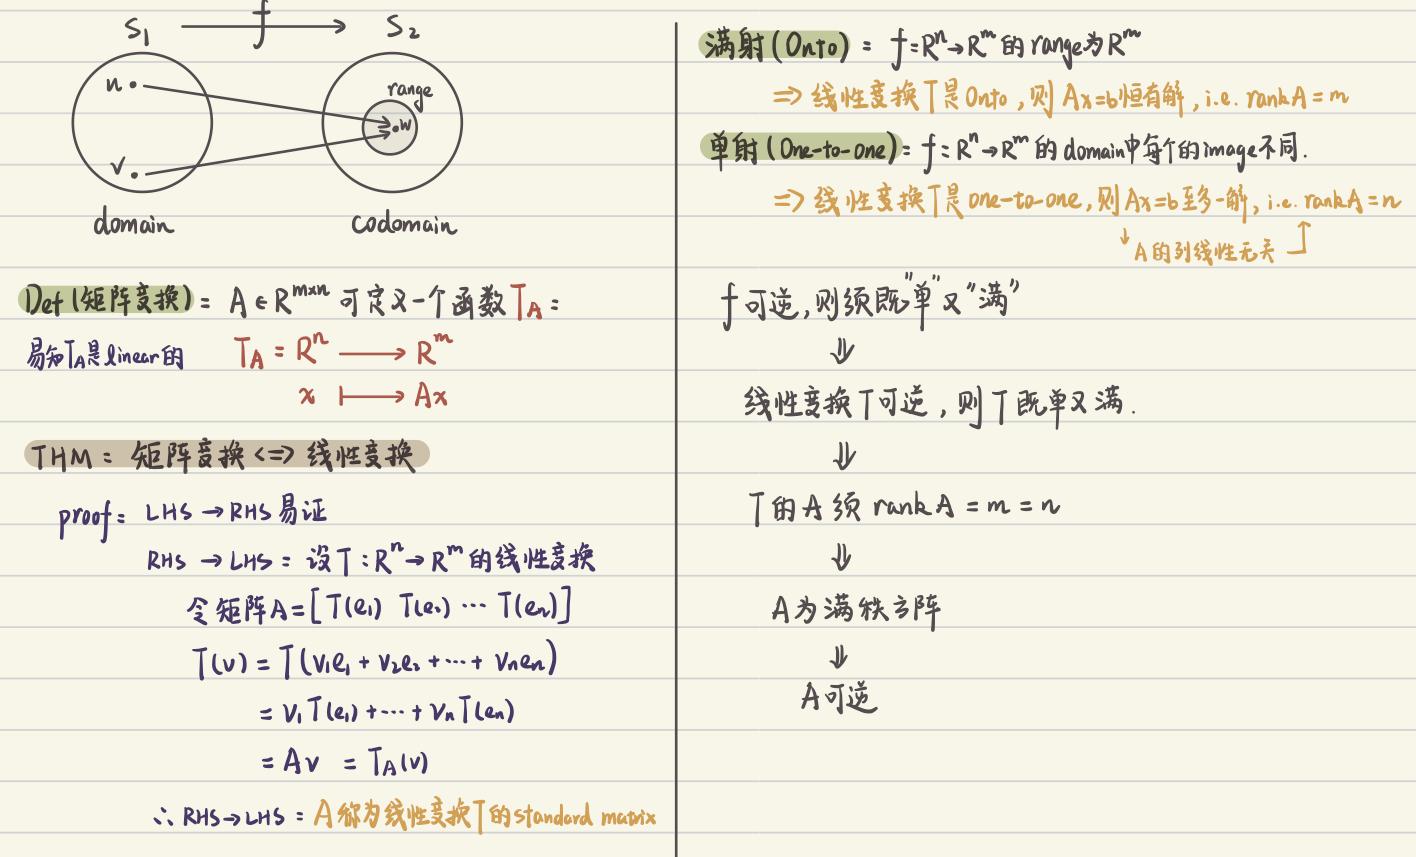 S₁ f S₂
u
v
range
w
domain codomain
Def (矩阵变换): A ∈ R^{m×n} 可定义一个函数 T_A :
易知T_A是linear的 T_A : R^n → R^m
x ↦ Ax
THM: 矩阵变换 <=> 线性变换
proof: LHS → RHS 易证
RHS → LHS: 设T: R^n → R^m 的线性变换
令矩阵A=[T(e₁) T(e₂) ⋯ T(e_n)]
T(v) = T(v₁e₁ + v₂e₂ + ⋯ + v_ne_n)
= v₁T(e₁) + ⋯ + v_nT(e_n)
= Av = T_A(v)
∴ RHS→LHS: A称为线性变换T的standard matrix
满射(Onto): f: R^n → R^m 的 range为R^m
=> 线性变换T是Onto, 则 Ax=b恒有解, i.e. rankA = m
单射(One-to-one): f: R^n → R^m 的 domain中每个的image不同.
=> 线性变换T是one-to-one, 则Ax=b至多一解, i.e. rankA = n
↓ A的列线性无关
f可逆, 则须既"单"又"满"
⇓
线性变换T可逆, 则T既单又满.
⇓
T的A须 rankA = m = n
⇓
A为满秩方阵
⇓
A可逆